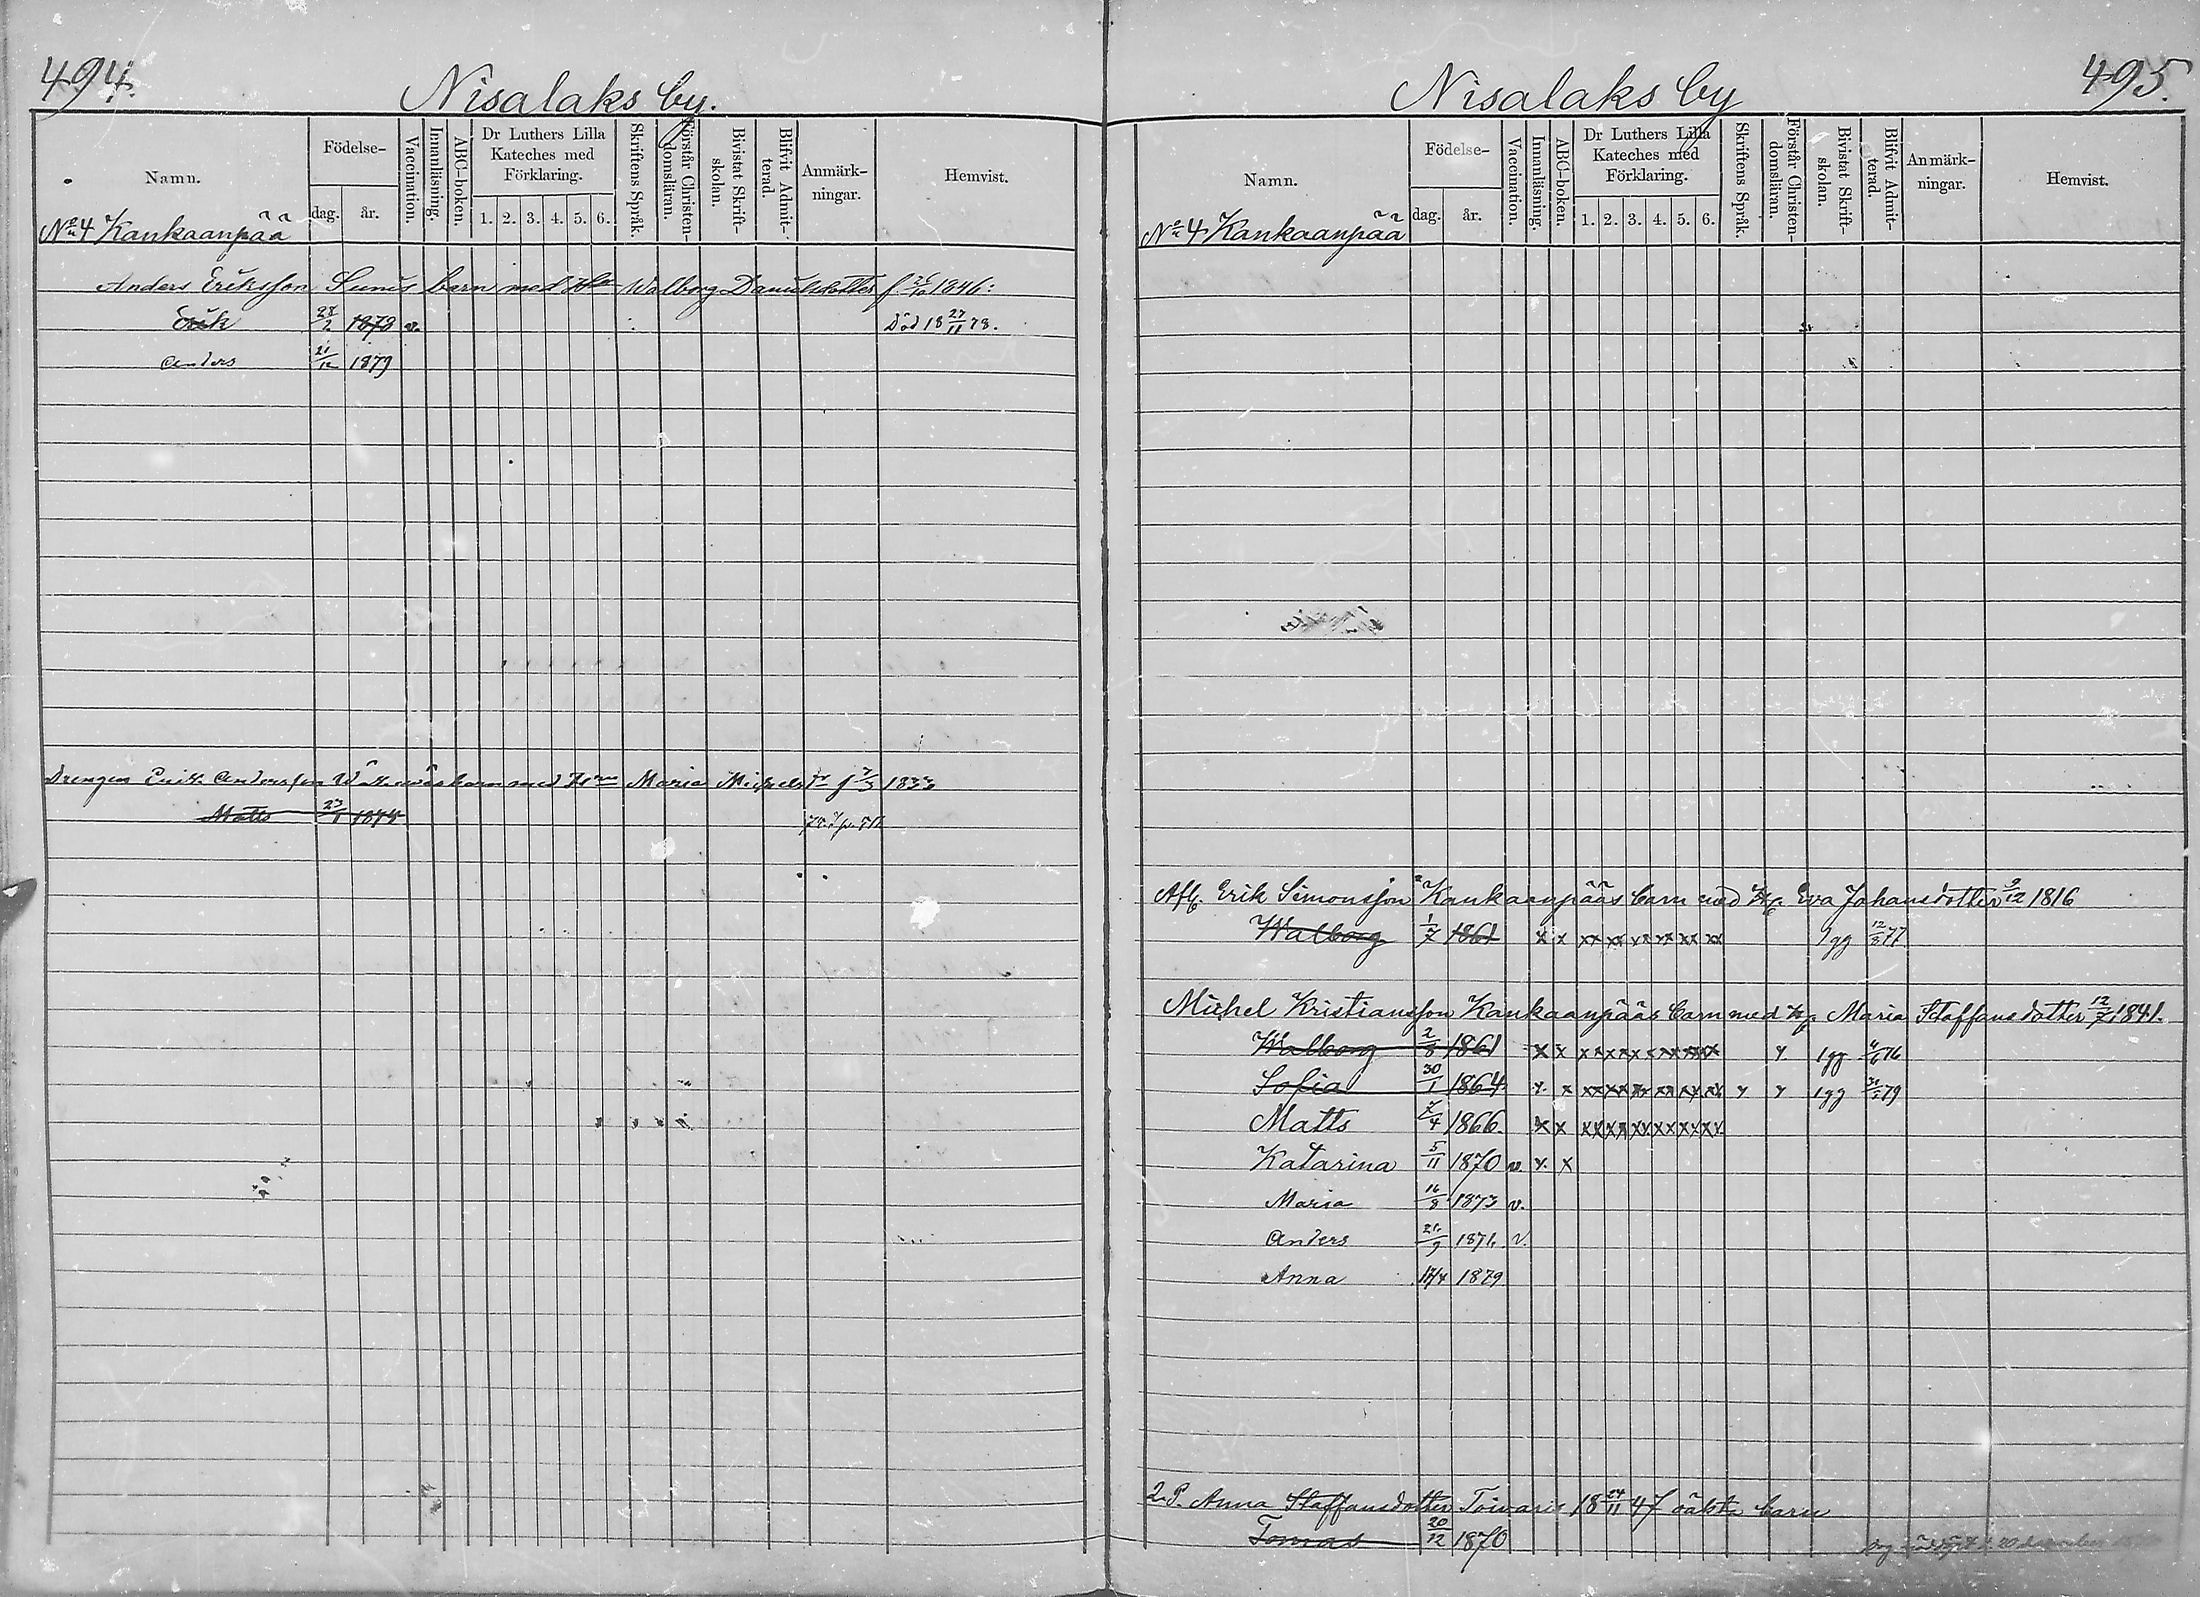 494.
Nisalaks by.
Namn.
Födelse-
dag.
år.
Vaccination.
Innanläsning.
ABC-boken.
Dr Luthers Lilla
Kateches med
Förklaring.
1. 2. 3. 4. 5. 6.
Skriftens Språk.
Förstår Christen-
domsläran.
Bivistat Skrift-
skolan.
Blifvit Admit-
terad.
Anmärk-
ningar.
Hemvist.
No 4 Kankaanpää
Anders Eriksson Sunis barn med Walborg Danielsdotter f 1846:
Erik 28/2 1878 v. Död 18 27/11 78.
Anders 21/12 1879
Drengen Erik Andersson barn med Maria Michelsdr f 1833
Matts 23/1 1875
495.
Nisalaks by
Namn.
Födelse-
dag.
år.
Vaccination.
Innanläsning.
ABC-boken.
Dr Luthers Lilla
Kateches med
Förklaring.
1. 2. 3. 4. 5. 6.
Skriftens Språk.
Förstår Christen-
domsläran.
Bivistat Skrift-
skolan.
Blifvit Admit-
terad.
Anmärk-
ningar.
Hemvist.
No 4 Kankaanpää
Afl. Erik Simonsson Kankaanpääs barn med H. Eva Johansdotter 9/12 1816
Walborg 1/7 1861 x x xx xx xx xx xx xx 1 gg 77
Michel Kristiansson Kankaanpääs barn med H. Maria Staffansdotter 12/7 1841.
Walborg 2/8 1861 x x xx xx xx xx xx xx x 1 gg 76
Sofia 30/1 1864 x x xx xx xx xx xx xx x x 1 gg 79
Matts 7/4 1866. x x xx xx xx xx xx xx
Katarina 5/11 1870 v. x x
Maria 16/8 1873 v.
Anders 21/9 1876 v.
Anna 17/4 1879
2. P. Anna Staffansdotter Toivari 18 24/11 47 oäkta barn
Tomas 20/12 1870